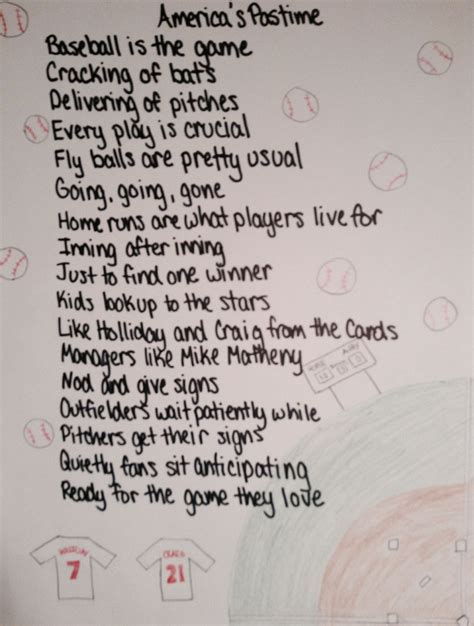 America's Pastime
Baseball is the game
Cracking of bats
Delivering of pitches
Every play is crucial
Fly balls are pretty usual
Going, going, gone
Home runs are what players live for
Inning after inning
Just to find one winner
Kids look up to the stars
Like Holliday and Craig from the Cards
Managers like Mike Matheny
Nod and give signs
Outfielders wait patiently while
Pitchers get their signs
Quietly fans sit anticipating
Ready for the game they love
HOME AWAY
HOLLIDAY
7
CRAIG
21